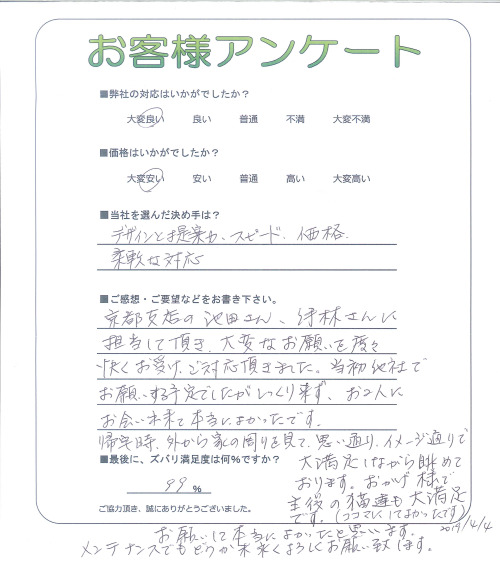 お客様アンケート
■弊社の対応はいかがでしたか？
大変良い 良い 普通 不満 大変不満
■価格はいかがでしたか？
大変安い 安い 普通 高い 大変高い
■当社を選んだ決め手は？
デザインと提案力、スピード、価格、
柔軟な対応
■ご感想・ご要望などをお書き下さい。
京都支店の池田さん、坪林さんに
担当して頂き、大変なお願いを度々
快くお受け、ご対応頂きました。当初他社で
お願いする予定でしたがしっくり来ず、お2人に
お会い出来て本当によかったです。
帰宅時、外から家の周りを見て、思い通り、イメージ通りで
大満足しながら眺めて
おります。おかげ様で
主役の猫達も大満足
です。（ココマにしてよかったです）
■最後に、ズバリ満足度は何％ですか？
99 %
ご協力頂き、誠にありがとうございました。
2019/4/4
お願いして本当によかったと思います。
メンテナンスでもどうか末永くよろしくお願い致します。